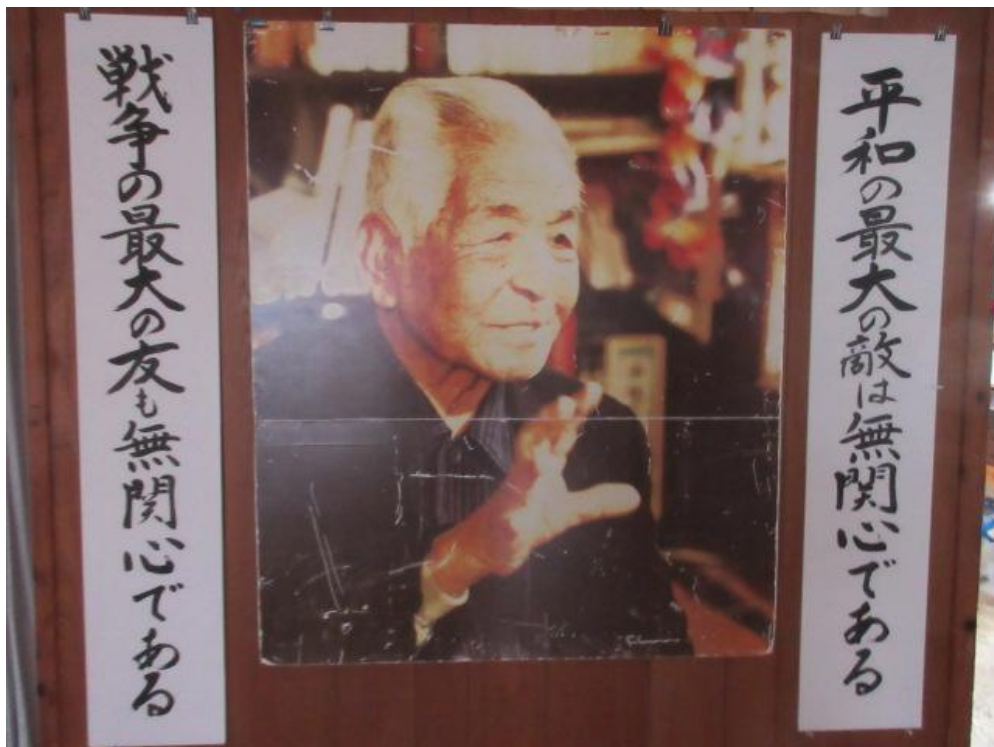 平和の最大の敵は無関心である
戦争の最大の友も無関心である